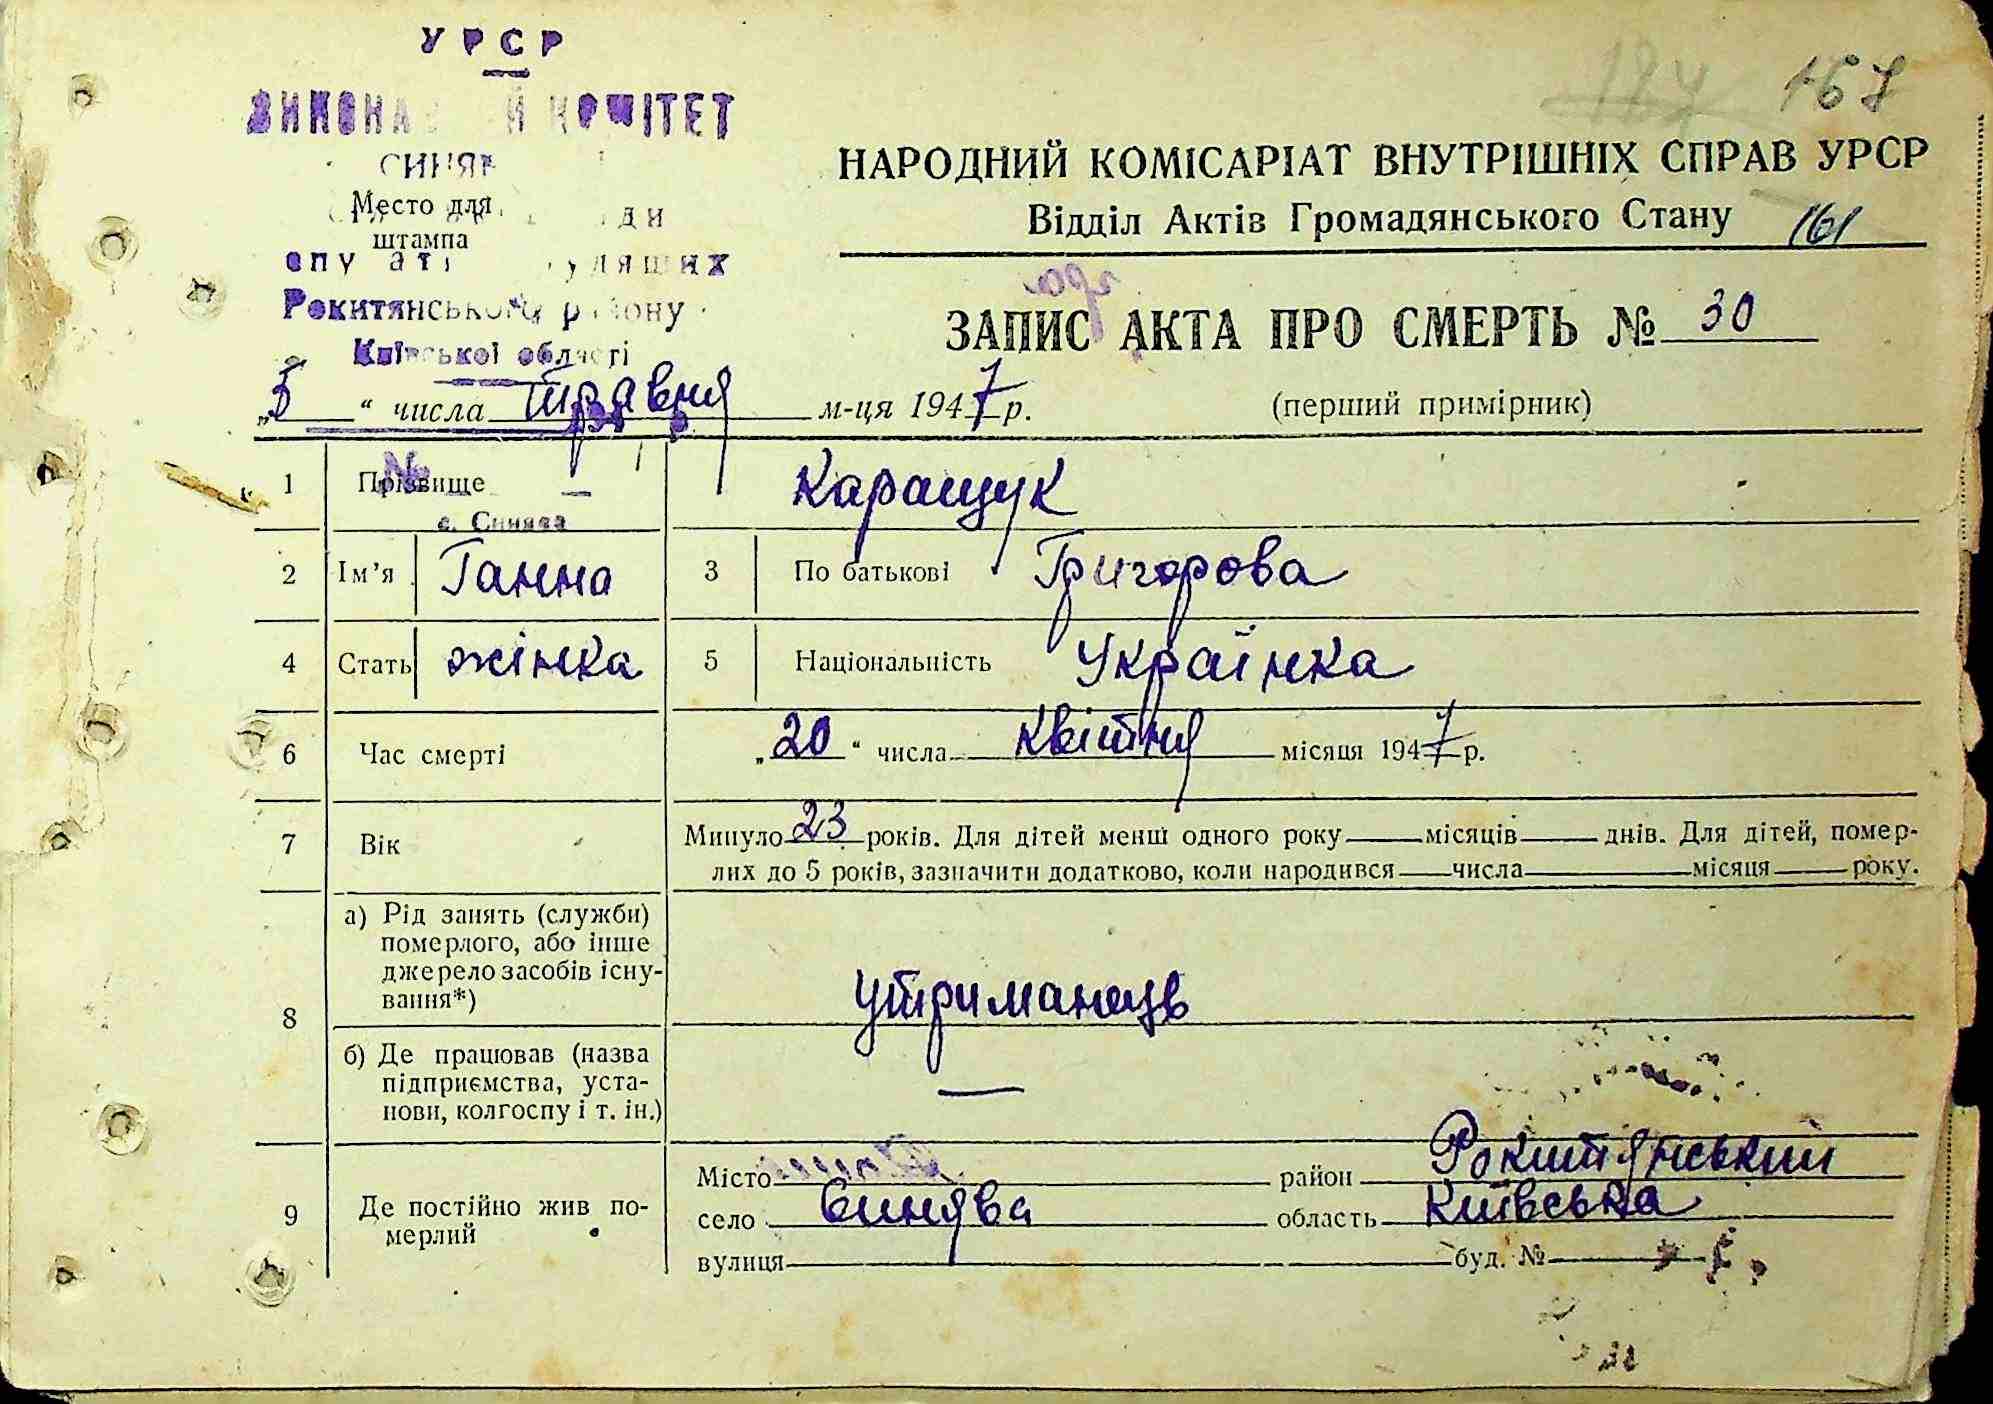 УРСР
КОМІТЕТ
187 167
НАРОДНИЙ КОМІСАРІАТ ВНУТРІШНІХ СПРАВ УРСР
Место для
штампа
Відділ Актів Громадянського Стану 161
Рокитянського району
Київської області
ЗАПИС АКТА ПРО СМЕРТЬ № 30
„5“ числа травня м-ця 1947 р.
(перший примірник)
1 Прізвище Каращук
с. Синява
2 Ім’я Ганна 3 По батькові Григорова
4 Стать жінка 5 Національність Українка
6 Час смерті „20“ числа квітня місяця 1947 р.
7 Вік Минуло 23 років. Для дітей менш одного року місяців днів. Для дітей, помер-
лих до 5 років, зазначити додатково, коли народився числа місяця року.
8 а) Рід занять (служби)
померлого, або інше
джерело засобів існу-
вання*) утриманець
б) Де працював (назва
підприємства, уста-
нови, колгоспу і т. ін.) —
9 Де постійно жив по-
мерлий
Місто район Рокитянський
село Синява область Київська
вулиця буд. №